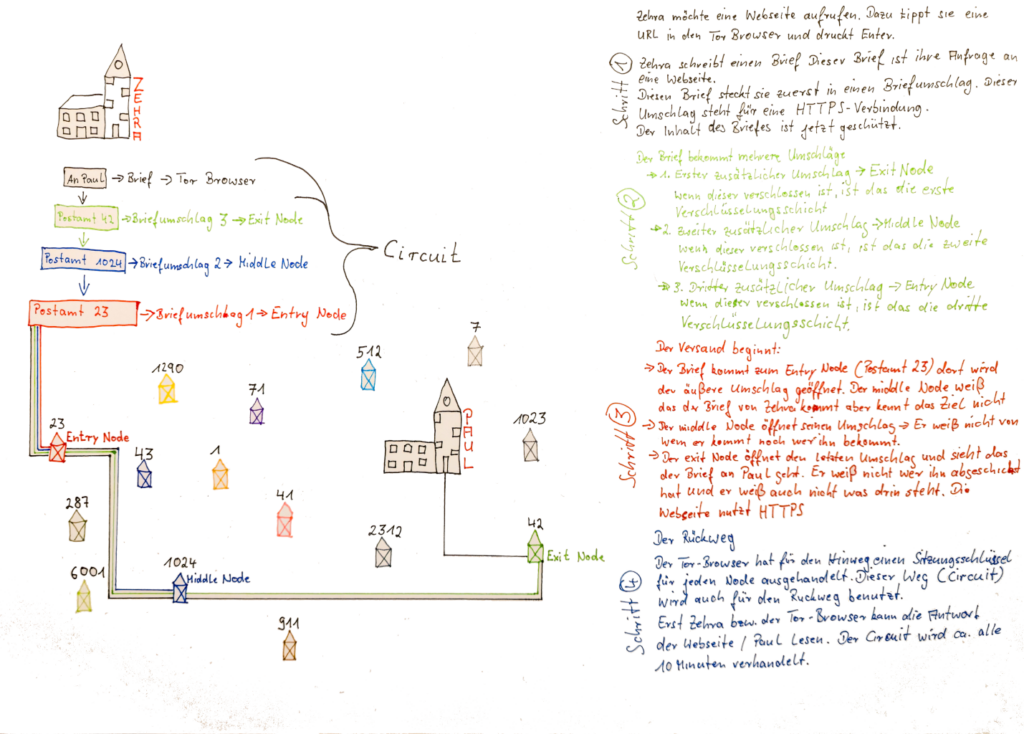 ZEHRA
An Paul → Brief → Tor Browser
Postamt 42 → Briefumschlag 3 → Exit Node
Postamt 1024 → Briefumschlag 2 → Middle Node
Postamt 23 → Briefumschlag 1 → Entry Node
Circuit
7
512
1290
71
PAUL
1023
23
Entry Node
43
1
287
41
2312
42
Exit Node
1024
Middle Node
6001
911
Zehra möchte eine Webseite aufrufen. Dazu tippt sie eine
URL in den Tor Browser und drückt Enter.
Schritt 1
Zehra schreibt einen Brief Dieser Brief ist ihre Anfrage an
eine Webseite.
Diesen Brief steckt sie zuerst in einen Briefumschlag. Dieser
Umschlag steht für eine HTTPS-Verbindung.
Der Inhalt des Briefes ist jetzt geschützt.
Schritt 2
Der Brief bekommt mehrere Umschläge
→ 1. Erster zusätzlicher Umschlag → Exit Node
Wenn dieser verschlossen ist, ist das die erste
Verschlüsselungsschicht
→ 2. Zweiter zusätzlicher Umschlag → Middle Node
wenn dieser verschlossen ist, ist das die zweite
Verschlüsselungsschicht.
→ 3. Dritter zusätzlicher Umschlag → Entry Node
wenn dieser verschlossen ist, ist das die dritte
Verschlüsselungsschicht.
Schritt 3
Der Versand beginnt:
→ Der Brief kommt zum Entry Node (Postamt 23) dort wird
der äußere Umschlag geöffnet. Der middle Node weiß
das der Brief von Zehra kommt aber kennt das Ziel nicht
→ Der middle Node öffnet seinen Umschlag → Er weiß nicht von
wem er kommt noch wer ihn bekommt.
→ Der exit Node öffnet den letzten Umschlag und sieht das
der Brief an Paul geht. Er weiß nicht wer ihn abgeschickt
hat und er weiß auch nicht was drin steht. Die
Webseite nutzt HTTPS
Schritt 4
Der Rückweg
Der Tor-Browser hat für den Hinweg einen Sitzungsschlüssel
für jeden Node ausgehandelt. Dieser Weg (Circuit)
wird auch für den Rückweg benutzt.
Erst Zehra bzw. der Tor-Browser kann die Antwort
der Webseite / Paul Lesen. Der Circuit wird ca. alle
10 Minuten verhandelt.